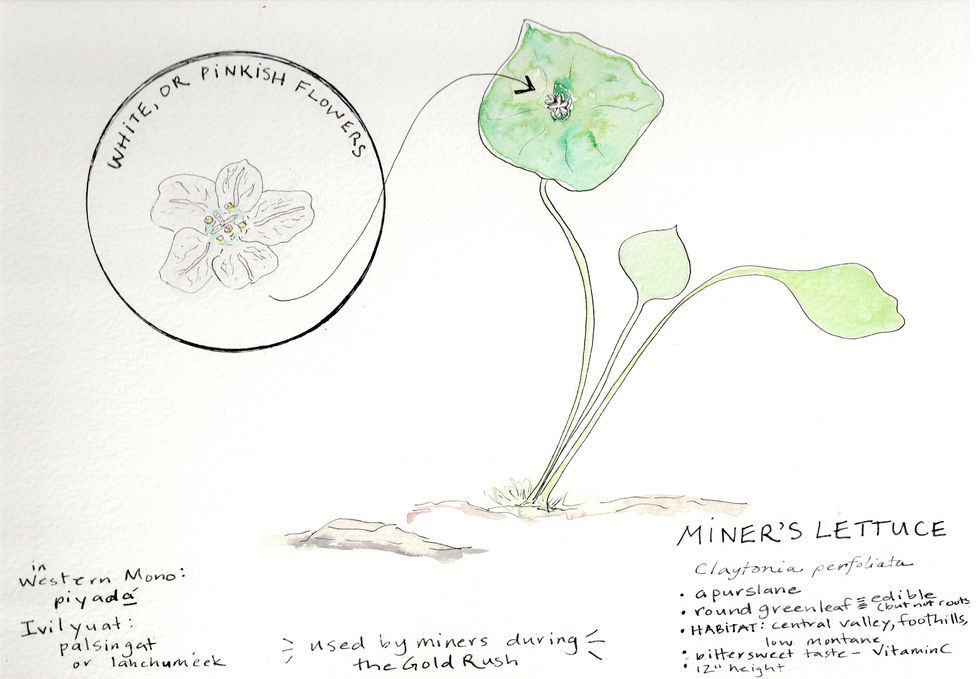 WHITE, OR PINKISH FLOWERS
MINER'S LETTUCE
Claytonia perfoliata
• a purslane
• round green leaf ≡ edible
(but not roots
• HABITAT: central valley, foothills,
low montane
• bittersweet taste - Vitamin C
• 12" height
in
Western Mono:
piyadá
Ivilyuat:
palsingat
or lahchumeek
used by miners during
the Gold Rush